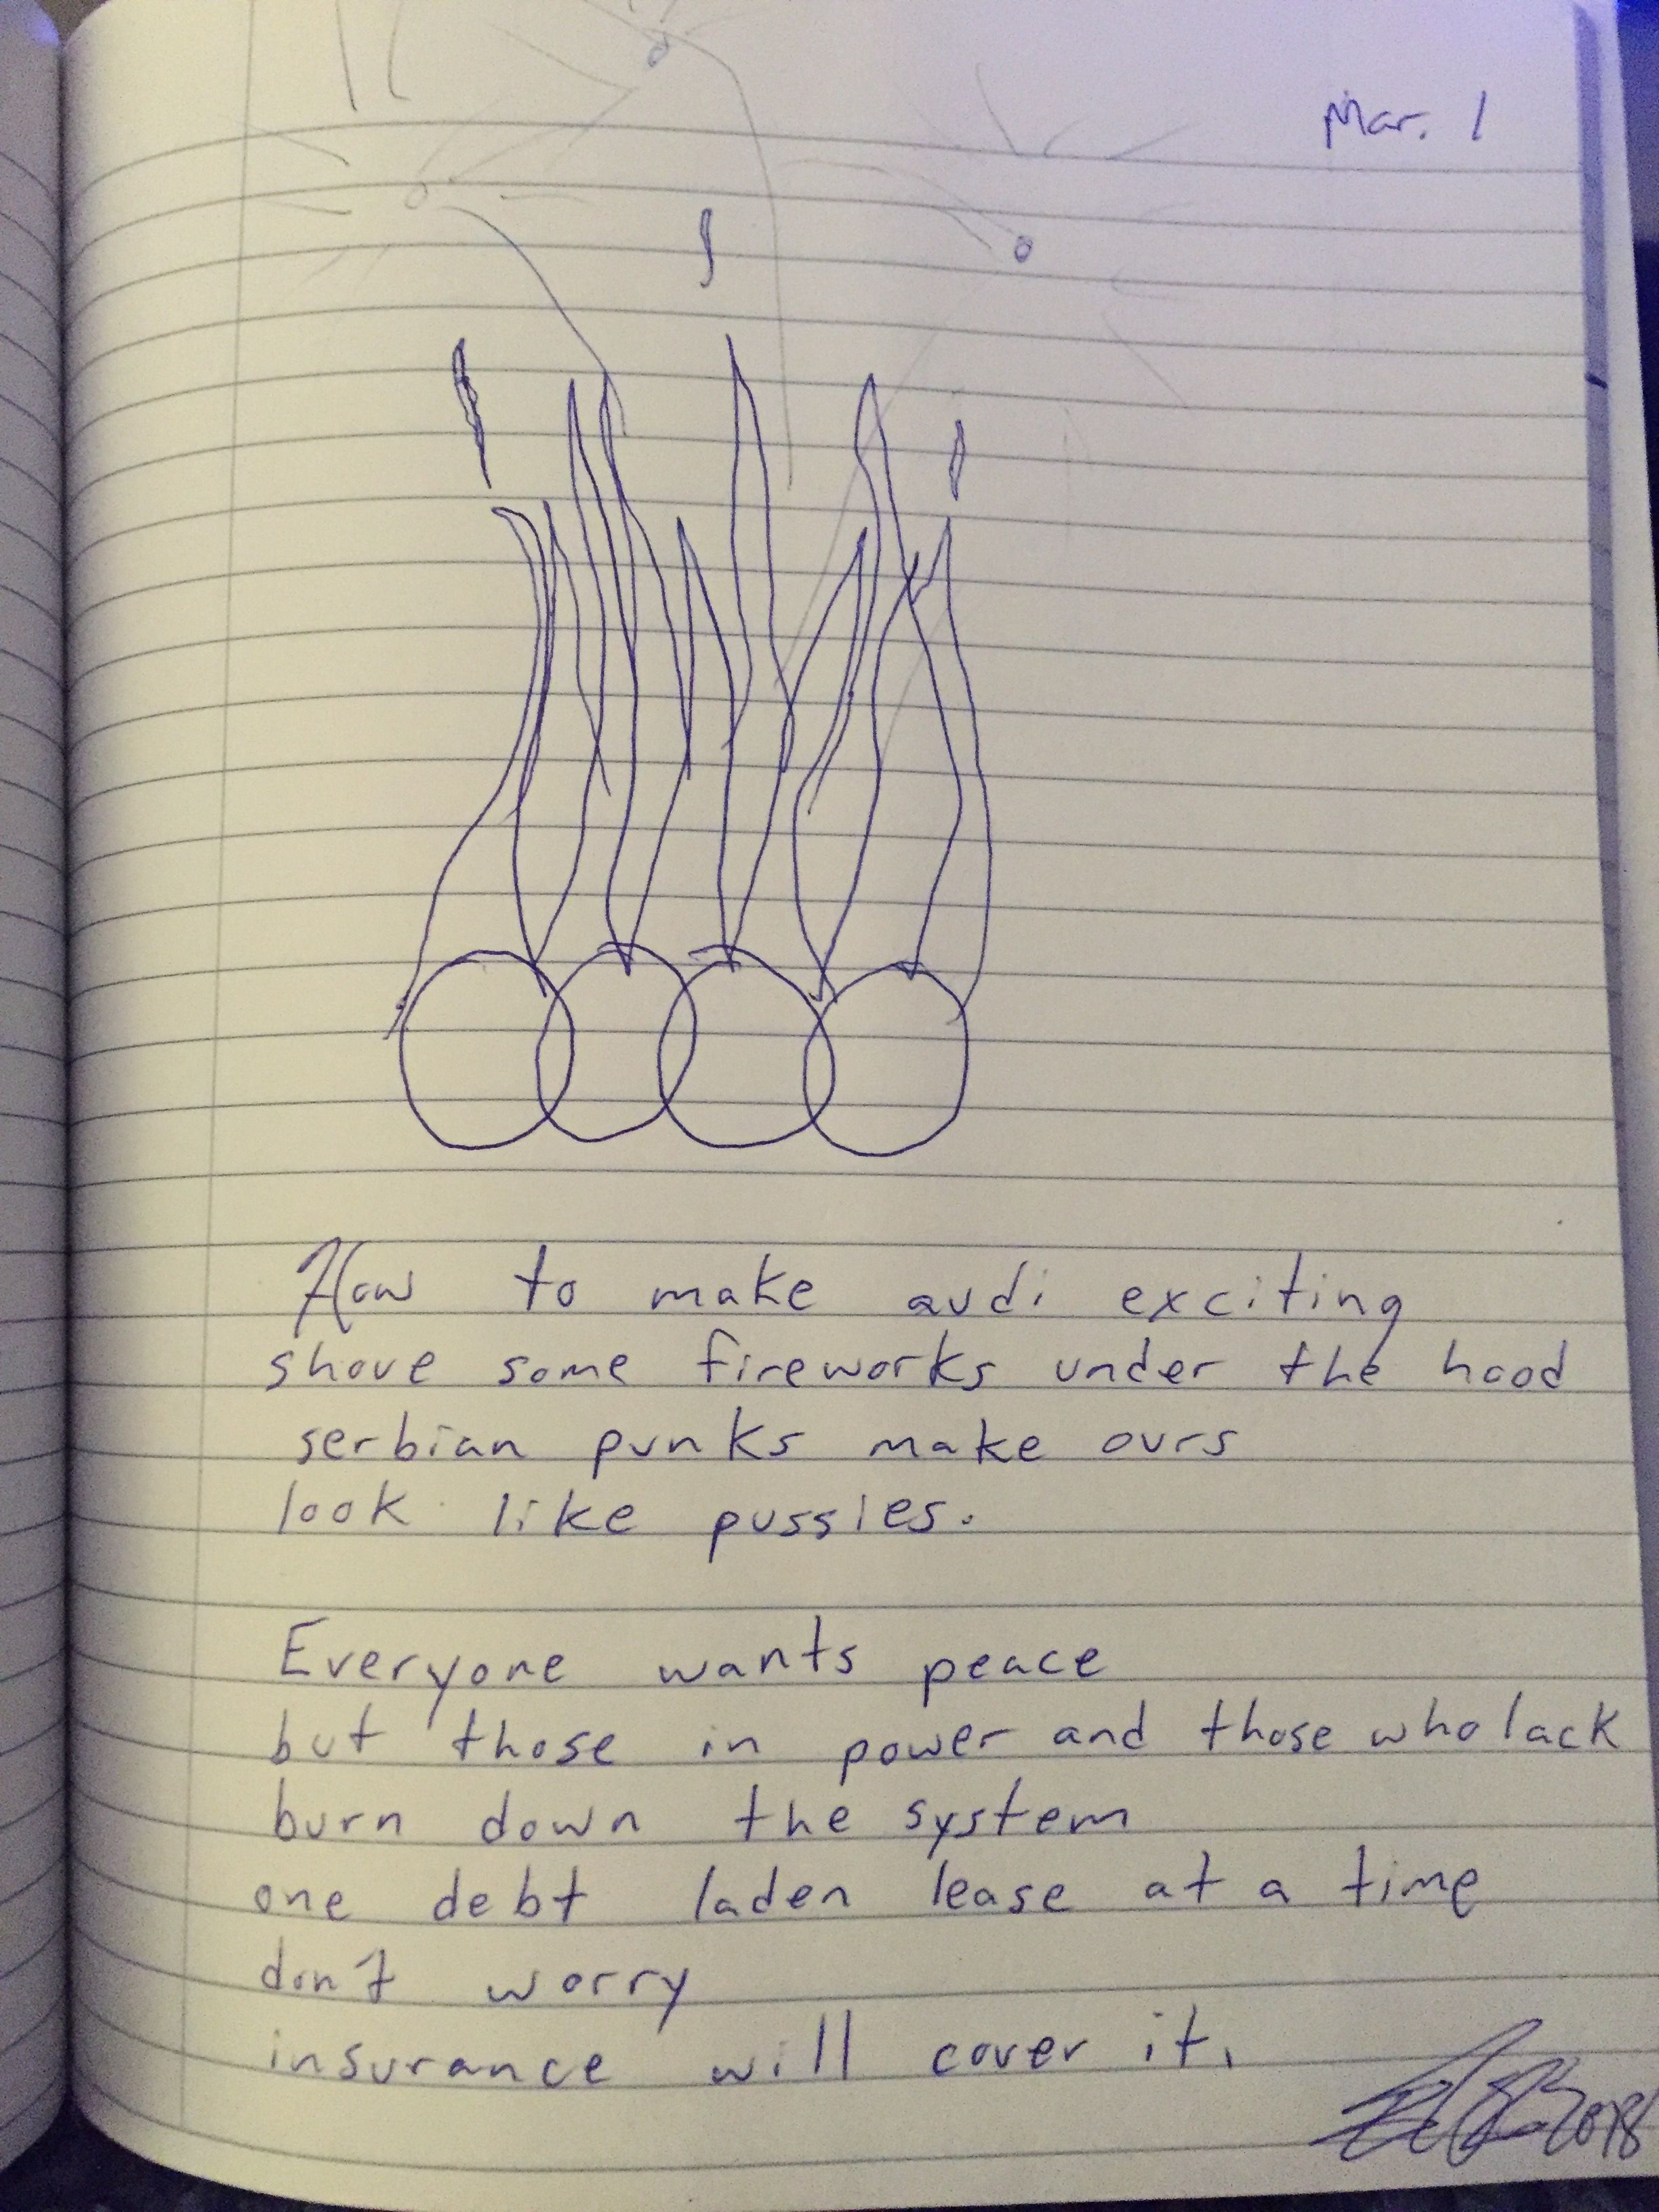 Mar. 1
How to make audi exciting
shove some fireworks under the hood
serbian punks make ours
look like pussies.
Everyone wants peace
but those in power and those who lack
burn down the system
one debt laden lease at a time
don't worry
insurance will cover it.
2018